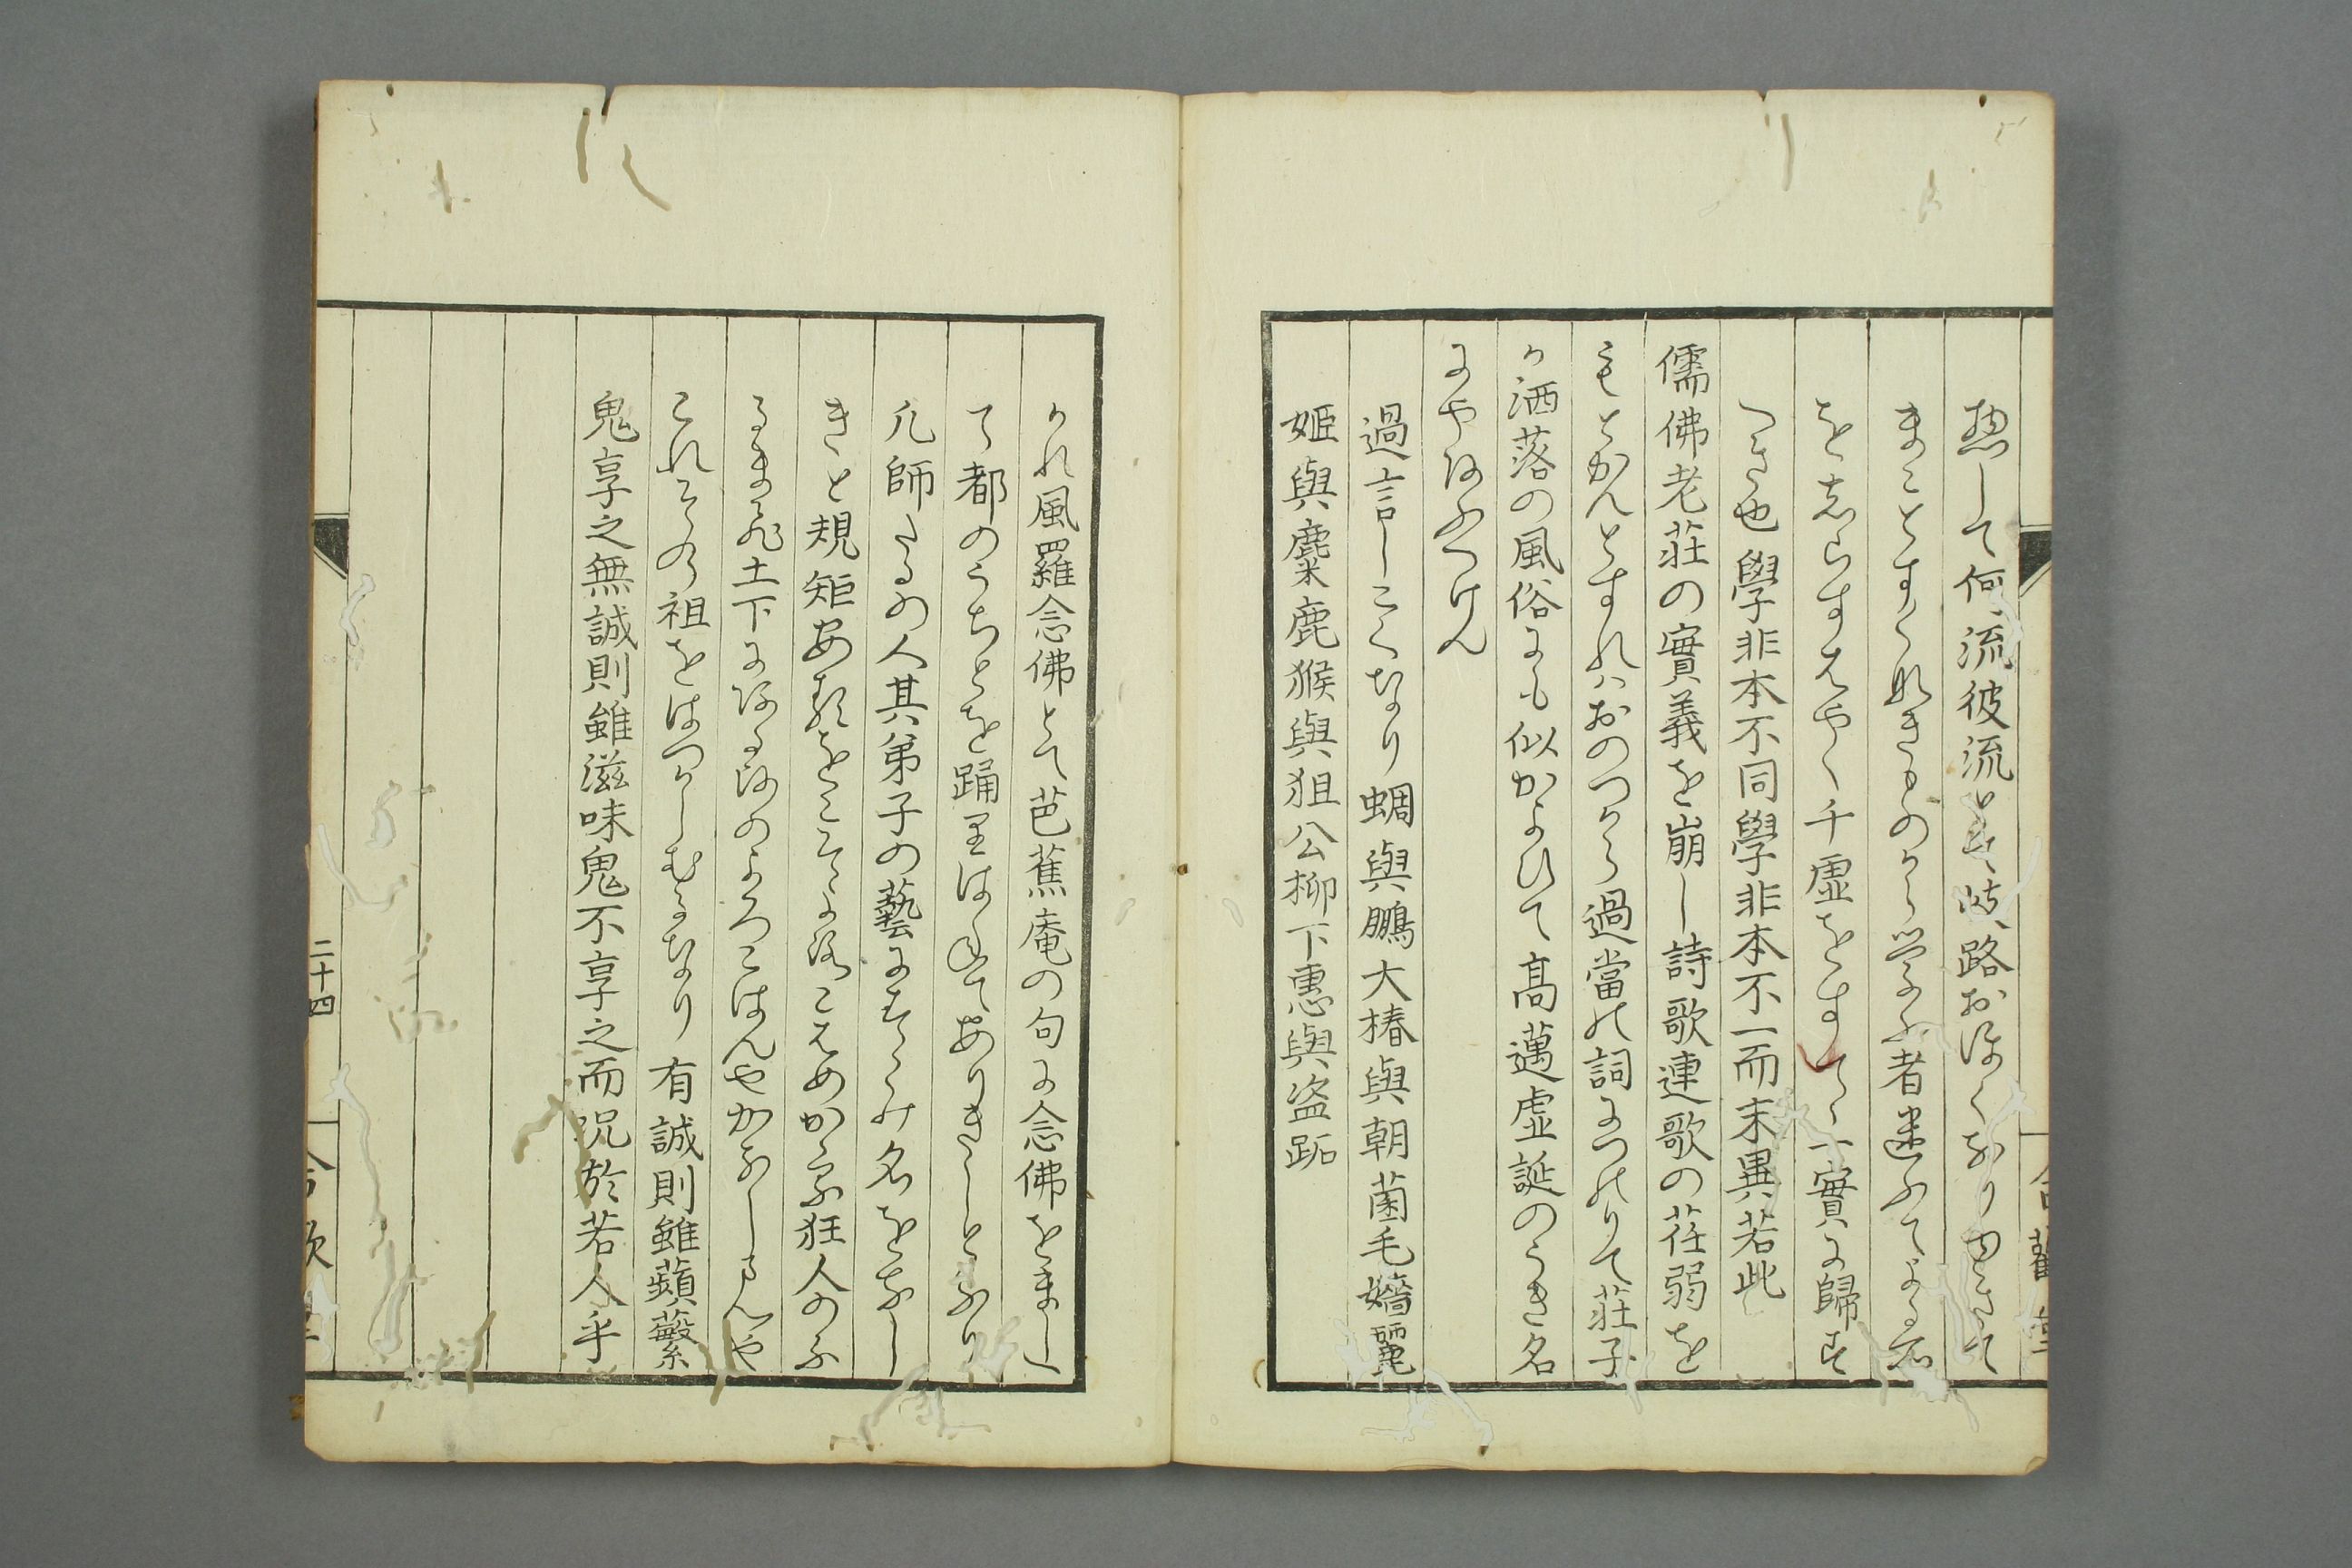 惣して何流彼流とて岐路おほくなりゆきて
まことすくなきものから学ふ者迷ふてよる所
をしらすはやく千虚をすてゝ一實に歸す
へき也學非本不同學非本不一而末異若此
儒佛老莊の實義を崩し詩歌連歌の荏弱を
もとかんとすれはおのつから過當の詞につのりて莊子
か洒落の風俗にも似かよひて高邁虚誕のうき名
にやあふへけん
過言しこくなり蜩與鵬大椿與朝菌毛嬙麗
姫與麋鹿猴與狙公柳下惠與盗跖
かれ風羅念佛とて芭蕉庵の句に念佛をましへ
て都のうちとを踊りありきしとなり
凡師たるの人其弟子の藝にすゝみ名をなし
きと規矩あるをこそよろこはめかゝる狂人のふ
るまひ土下にあるのよろこはんやかなしまんや
これその祖をはつかしむるなり有誠則雖蘋蘩
鬼享之無誠則雖滋味鬼不享之而况於若人乎
二十四